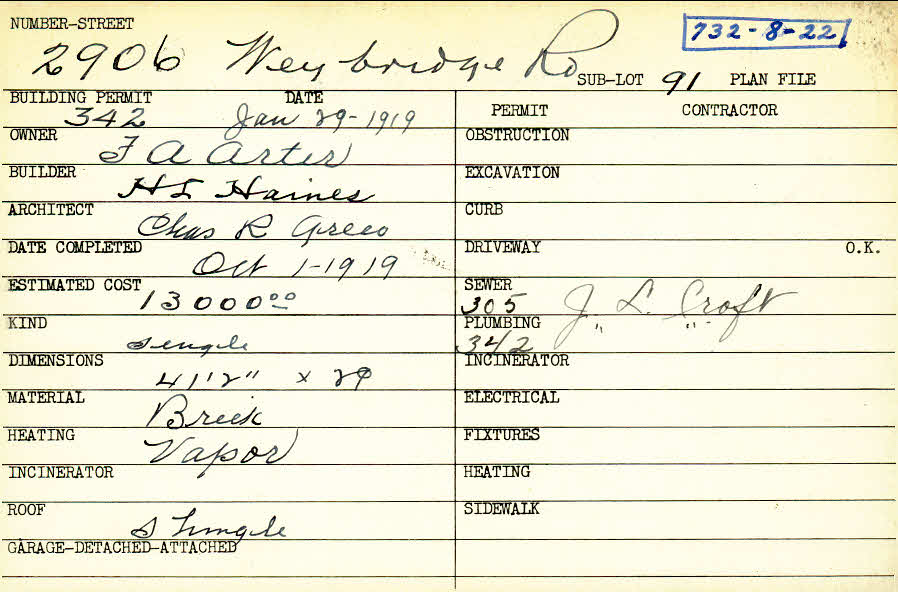 NUMBER-STREET
732-8-22
2906 Weybridge Rd SUB-LOT 91 PLAN FILE
BUILDING PERMIT DATE
342 Jan 29-1919
OWNER
F A Arter
BUILDER
H L Haines
ARCHITECT
Chas R Greco
DATE COMPLETED
Oct 1-1919
ESTIMATED COST
13000 00
KIND
Single
DIMENSIONS
41'2" x 29
MATERIAL
Brick
HEATING
Vapor
INCINERATOR
ROOF
Shingle
GARAGE-DETACHED-ATTACHED
PERMIT CONTRACTOR
OBSTRUCTION
EXCAVATION
CURB
DRIVEWAY O.K.
SEWER
305 J. L. Croft
PLUMBING
342 " "
INCINERATOR
ELECTRICAL
FIXTURES
HEATING
SIDEWALK